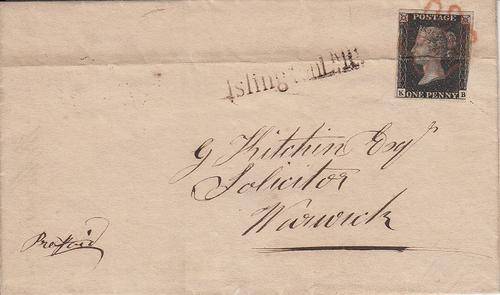 POSTAGE
K ONE PENNY B
Islington
G Hitchin Esqr
Solicitor
Warwick
Prepaid